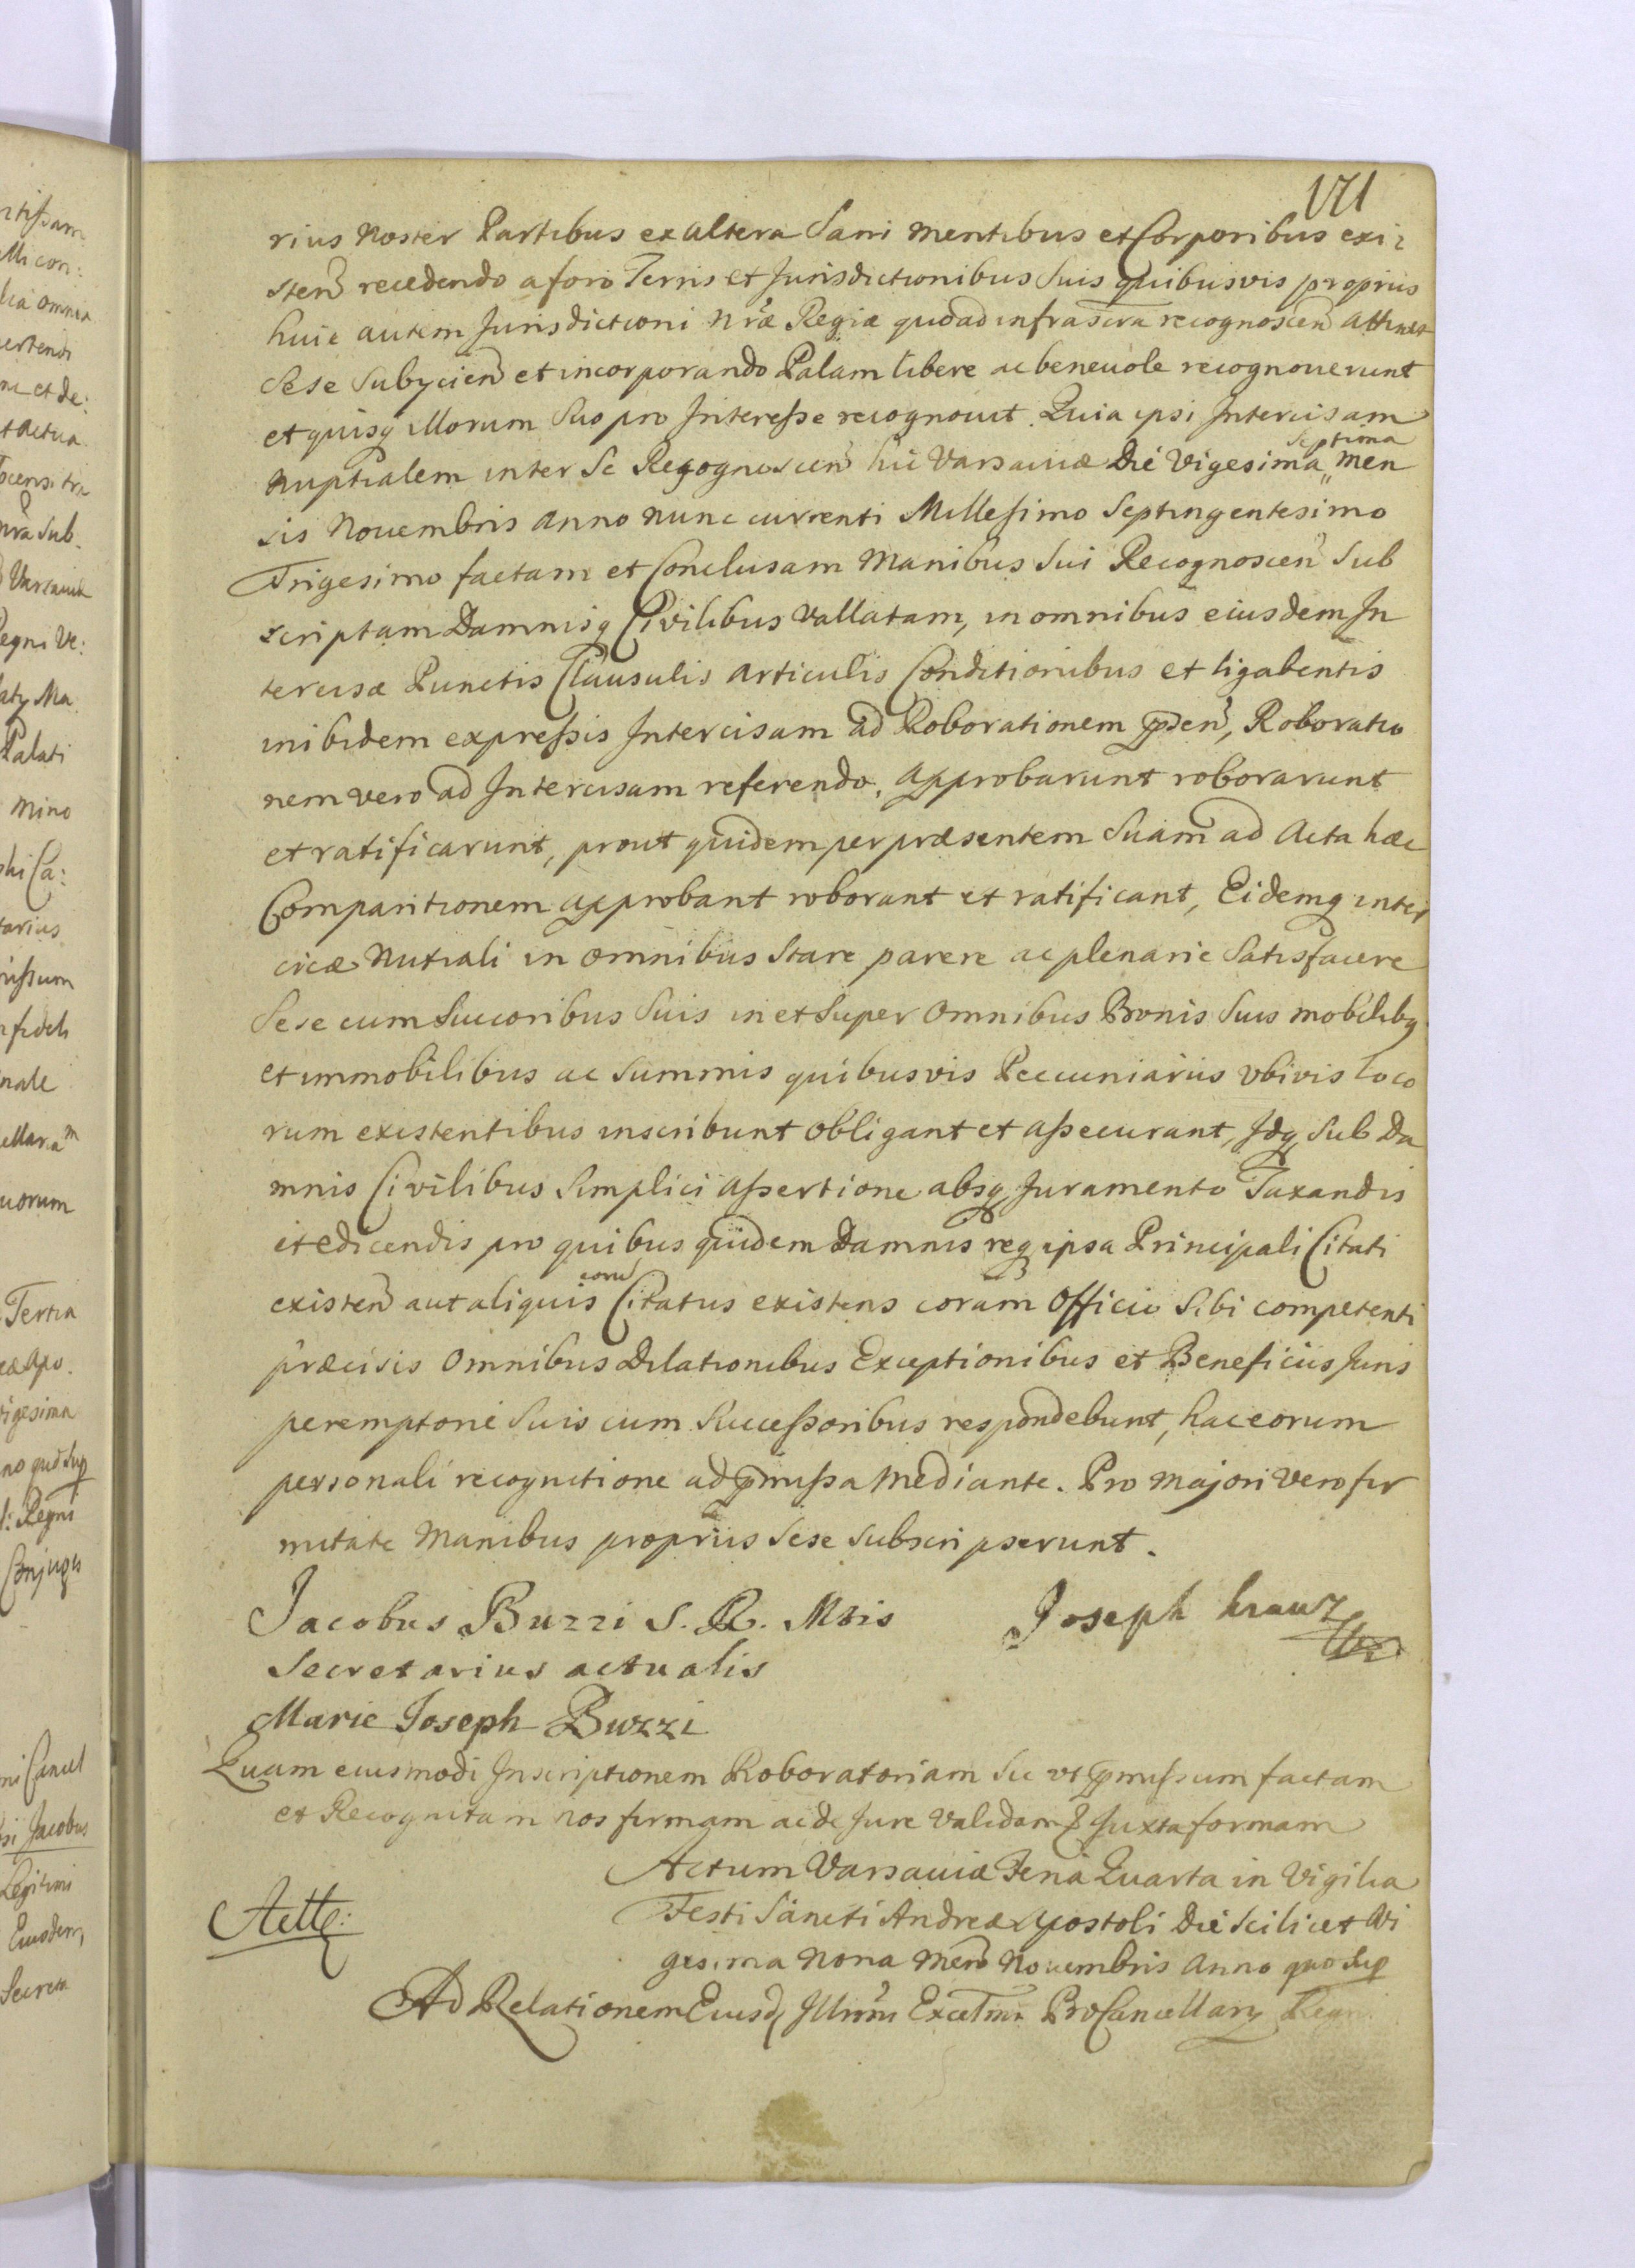 171
rius Noster Partibus ex altera Sani mentibus et Corporibus exi:
sten recedendo a foro Terris et Jurisdictionibus Suis quibusvis proprijs
huic autem Jurisdictioni Nræ Regiæ quo ad infrascra recognoscen attinet
Sese Subycien et incorporando Palam libere ac beneuole recognouerunt
et quisq illorum Suo pro Interesse recognouit. Quia ipsi Intercisam
Nuptialem inter Se Recognoscen hic Varsauiæ Die Vigesima Septima men
sis Nouembris Anno nunc currenti Millesimo Septingentesimo
Trigesimo factam et Conclusam Manibus Sui Recognoscen Sub
scriptam Damnisq Civilibus Vallatam, in omnibus eiusdem In
tercisæ Punctis Clausulis Articulis Conditionibus et ligabentis
inibidem expressis Intercisam ad Roborationem pden, Roboratio
nem vero ad Intercisam referendo, approbarunt roborarunt
et ratificarunt, prout quidem per præsentem Suam ad Acta hæc
Comparitionem approbant roborant et ratificant, Eidemq inter
cicæ Nutiali in omnibus Stare parere ac plenarie Satisfacere
Sese cum Succoribus Suis in et Super Omnibus Bonis Suis mobilibq
et immobilibus ac Summis quibusvis Peecuniarijs vbivis loco
rum existentibus inscribunt obligant et assecurant, Idq Sub Da
mnis Civilibus Simplici assertione absq Juramento Taxandis
et edicendis pro quibus quidem Damnis req ipsa Principali Citati
existen aut aliquis eorum Citatus existens coram Officio Sibi competenti
præcisis Omnibus Dilationibus Exceptionibus et Beneficijs Juris
peremptorie Suis cum Successoribus respondebunt, hac eorum
personali recognitione ad pmissa Mediante. Pro majori vero fir
mitate Manibus proprijs Sese Subscripserunt.
Jacobus Buzzi S. R. Mtis Joseph Krauz
Secretarius actualis
Marie Joseph Buzzi
Quam eiusmodi Inscriptionem Roboratoriam Sic vt pmissum factam
et Recognitam nos firmam ac de Jure Validam Juxta formam
Actum Varsauiæ Feria Quarta in Vigilia
Festi Sancti Andreæ Apostoli Die Scilicet Vi
gesima Nona Men Nouembris Anno quo Sup
Ad Relationem Eiusd Illmi Excellmi ProCancellary Regni